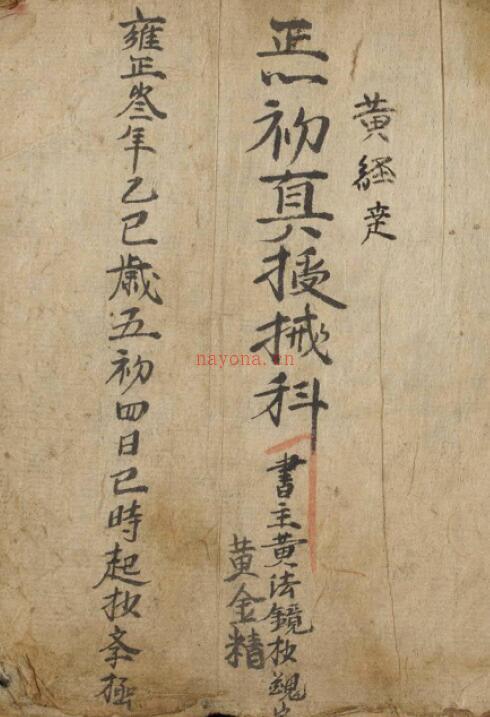 黄經
正一初真授械科
書主黄法鏡抄
黄金精
雍正叁年乙巳歲五初四日巳時起抄
nayona.cn